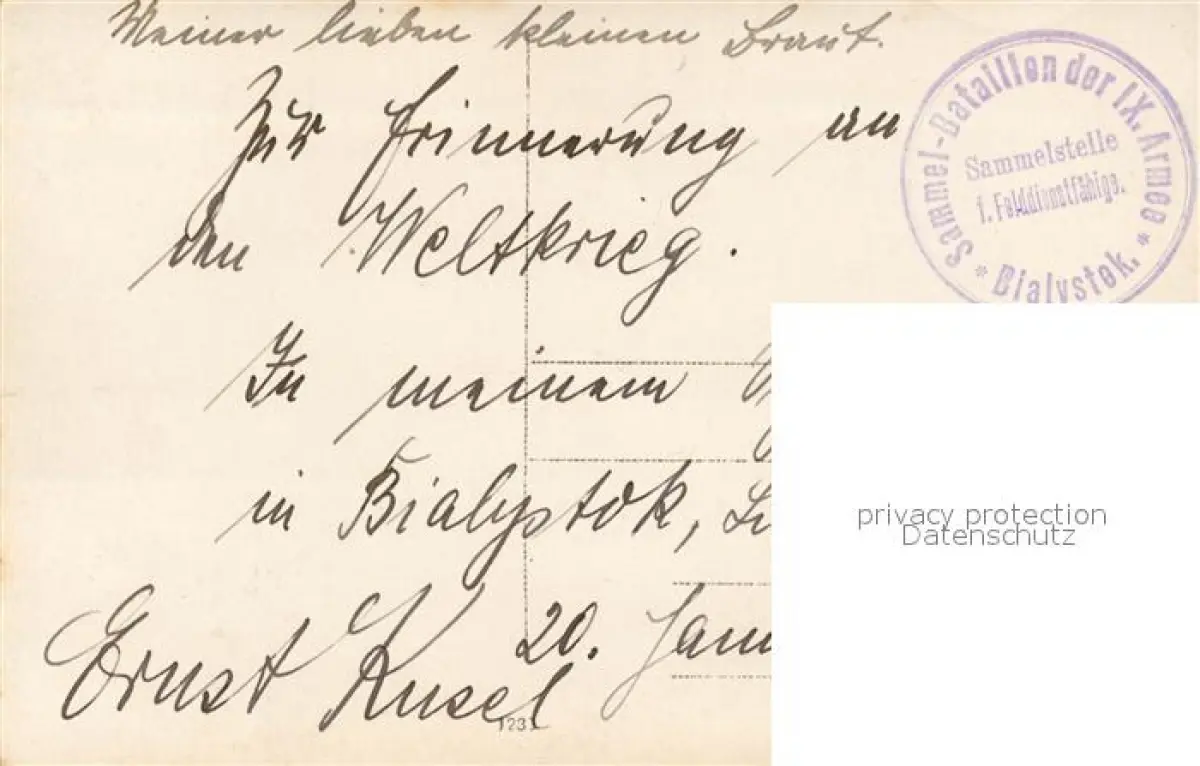 Meiner lieben kleinen Braut.
Zur Erinnerung an
den Weltkrieg.
In meinem
in Bialystok,
20. Jan
Ernst Kusel
Sammel-Bataillon der IX. Armee * Bialystok. *
Sammelstelle
f. Felddienstfähige.
privacy protection
Datenschutz